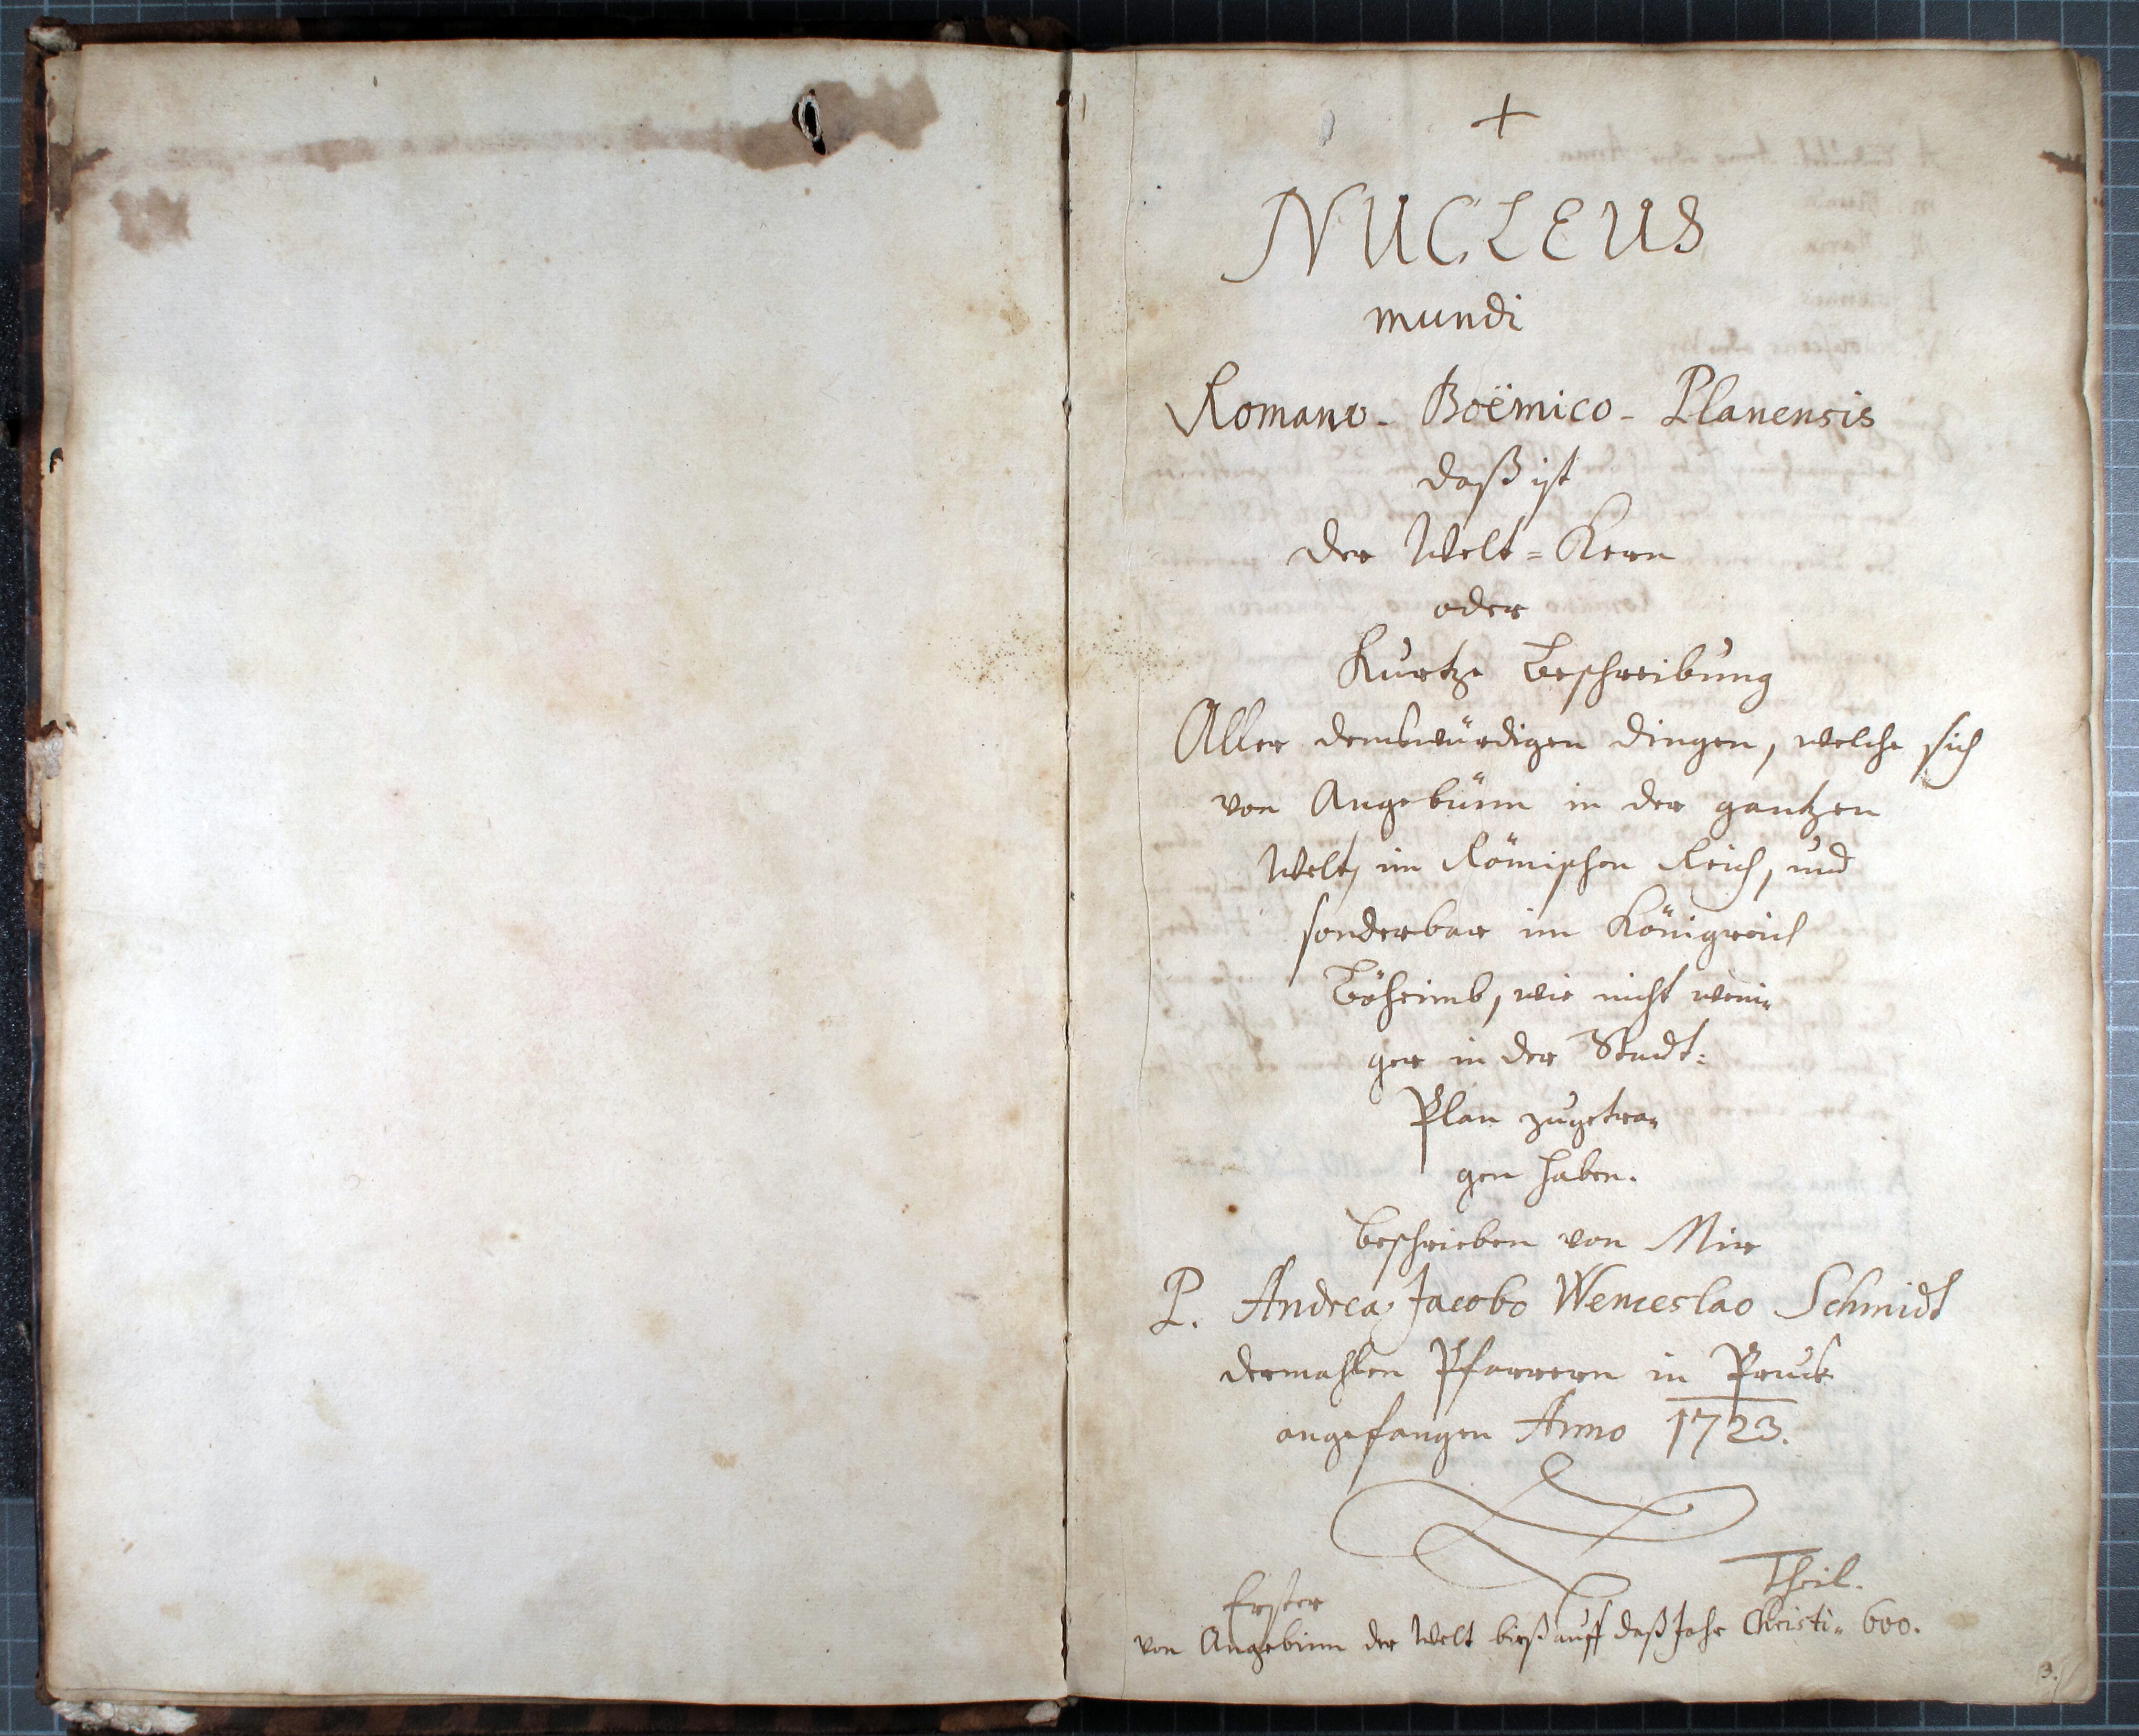 +
NUCLEUS
mundi
Romano- Boëmico- Planensis
daß ist
der Welt=Kern
oder
Kurtze Beschreibung
Aller denkwürdigen dingen, welche sich
von Angebünn in der gantzen
Welt, im Römischen Reich, und
sonderbar im Königreich
Böheimb, wie nicht weni=
ger in der Stadt:
Plan zugetra=
gen haben.
Beschrieben von Mir
P. Andrea Jacobo Wenceslao Schmidt
dermahlen Pfarrern in Pruck
angefangen Anno 1723.
Erster Theil.
von Angebinn der Welt bieß auff daß Jahr Christi= 600.
3.